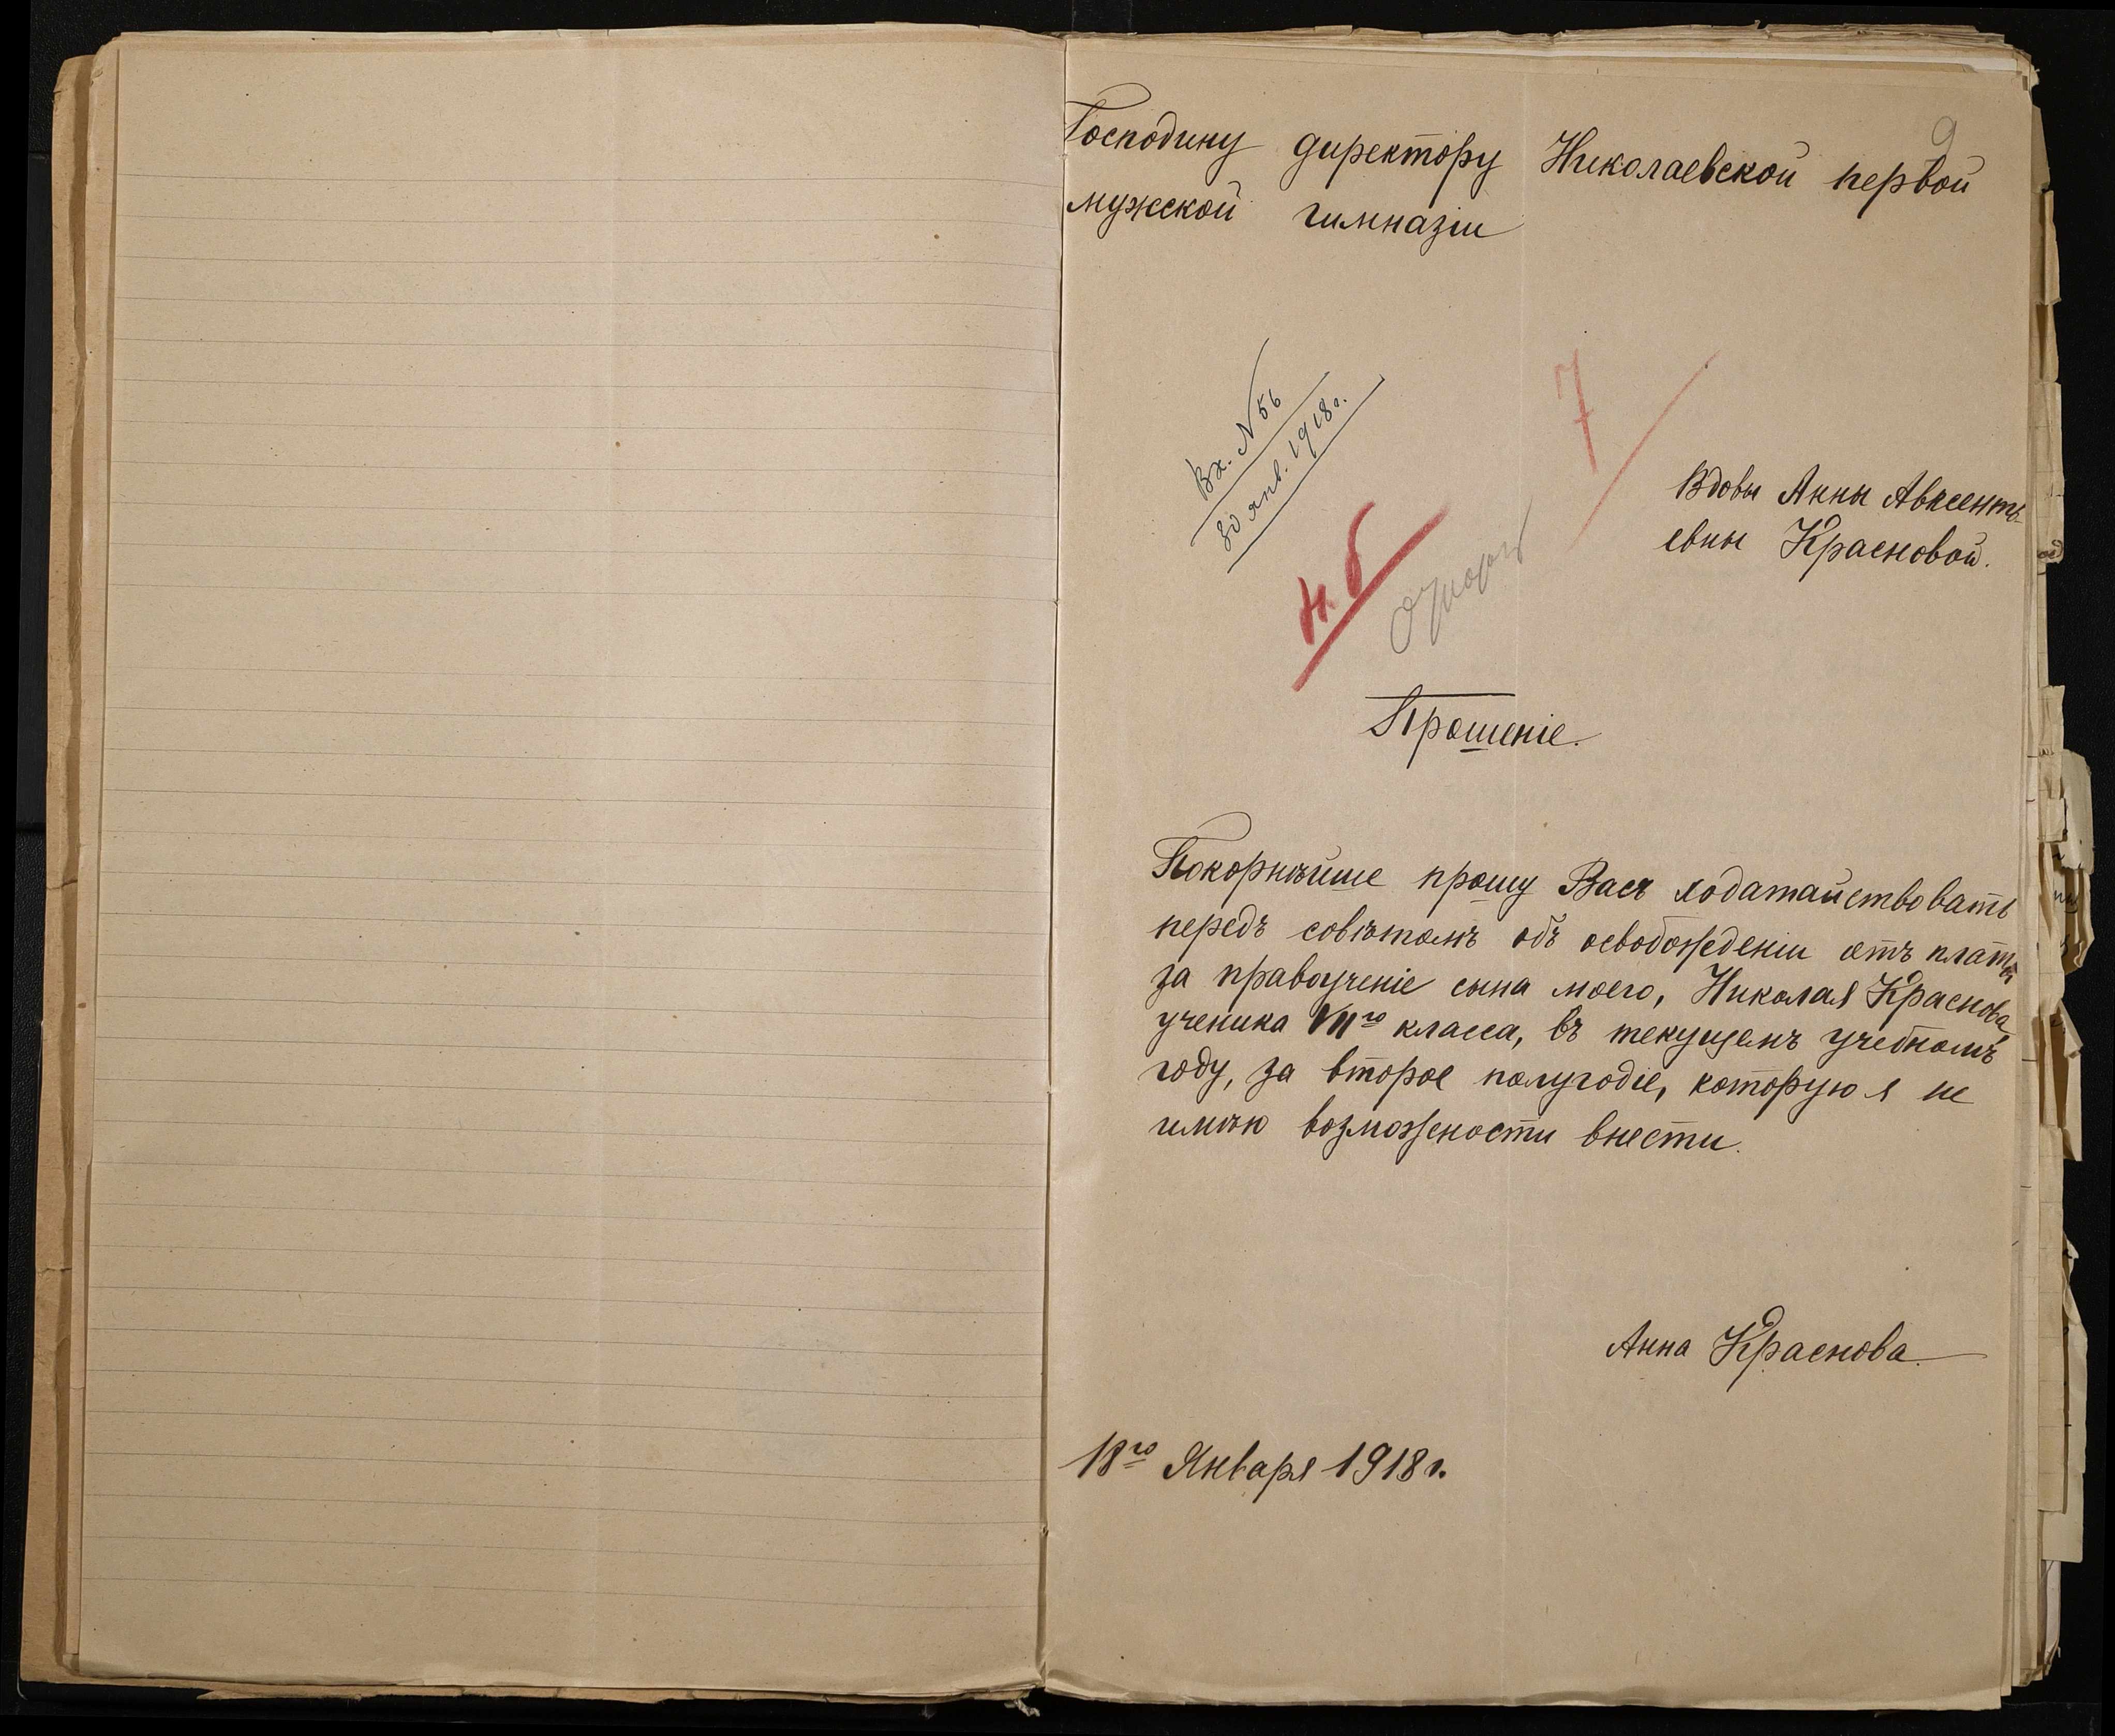 9
Господину директору Николаевской первой
мужской гимназіи
Вх. N 56
30 янв. 1918 г.
7
Вдовы Анны Авксенть-
евны Красновой.
Н. б
Прошеніе.
Покорнѣйше прошу Васъ ходатайствовать
передъ совѣтомъ объ освобожденіи отъ платы
за правоученіе сына моего, Николая Краснова,
ученика VIIго класса, въ текущемъ учебномъ
году, за второе полугодіе, которую я не
имѣю возможности внести.
Анна Краснова.
18го Января 1918 г.